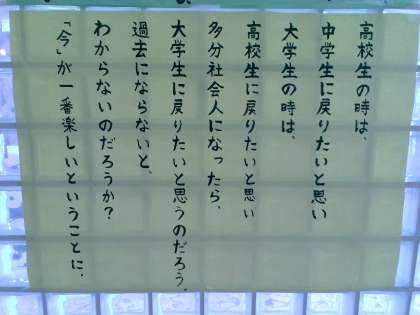 高校生の時は、
中学生に戻りたいと思い
大学生の時は、
高校生に戻りたいと思い
多分社会人になったら、
大学生に戻りたいと思うのだろう。
過去にならないと、
わからないのだろうか？
「今」が一番楽しいということに。